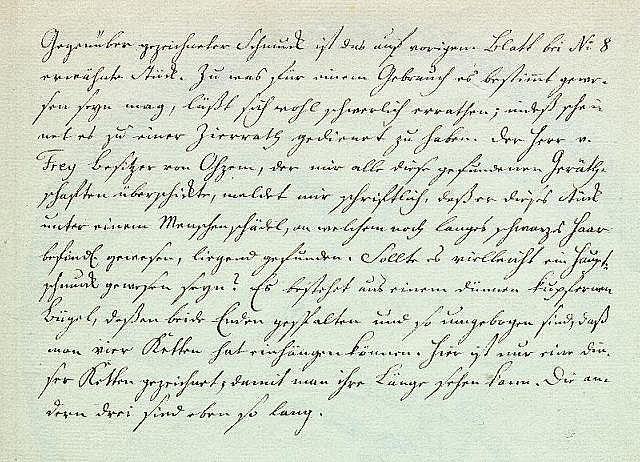 Gegenüber gezeichneter Schmuck ist das auf vorigem Blatt bei No 8
erwähnte Stück. Zu was für einem Gebrauch es bestimmt gewe-
sen seyn mag, läßt sich wohl schwerlich errathen; indeß schei
net es zu einer Zierrath gedienet zu haben. Der Herr v.
Frey Besitzer von Ohzem, der mir alle diese gefundenen Geräth-
schaften überschickte, meldet mir schriftlich, daß er dieses Stück
unter einem Menschenschädel, an welchem noch langes schwarzes Haar
befindl gewesen, liegend gefunden. Sollte es vielleicht ein Haupt-
schmuck gewesen seyn? Es bestehet aus einem dünnen kupfernen
Bügel, deßen beide Enden gespalten und so umgebogen sind, daß
man vier Ketten hat einhängen können. Hier ist nur eine die-
ser Ketten gezeichnet, damit man ihre Länge sehen kann. Die an-
dern drei sind eben so lang.